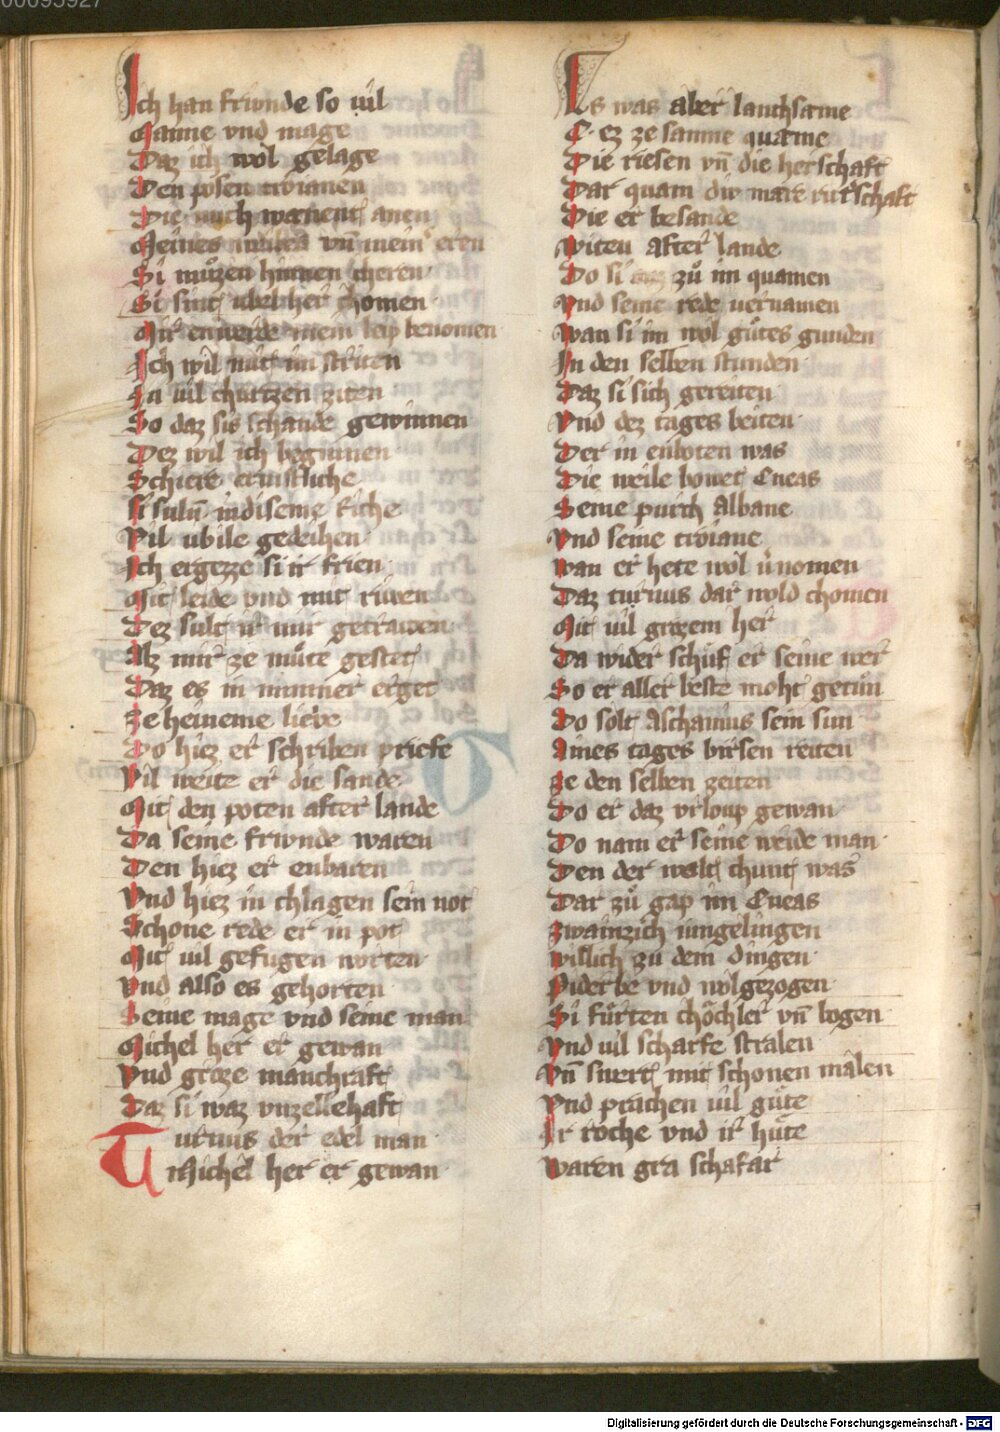 00095927
Ich han friwnde so uil
Manne vnd mage
Daz ich wol gelage
Den posen troianen
Die mich wænent anen
Meines vnd mein eren
Si muͦzen hinnen cheren
Si sint ubel her chomen
Mir enwerde mein leip benomen
Ich wil mit im striten
In uil churtzen ziten
So daz sis schande gewinnen
Dez wil ich beginnen
Schiere ernstliche
si suln in diseme riche
Vil ubile gedeihen
Ich ergezze si ir frien
Mit leide vnd mit riwen
Dez sult ir mir getrawen
Alz mir ze muͦte gestet
Daz es in nimmer erget
ze heineme liebe
Do hiez er schriben priefe
Vil weite er die sande
Mit den poten after lande
Da seine friwnde waren
Den hiez er enbaren
Vnd hiez in chlagen sein not
Schone rede er in pot
Mit uil gefugen worten
Vnd also es gehorten
Seine mage vnd seine man
Michel her er gewan
Vnd groze manchraft
Daz si waz vnzellehaft
Turnus der edel man
Michel her er gewan
Es was aber lanchsame
E ez ze samne quame
Die riesen vn̄ die herschaft
Dar quam diu mære ritterschaft
Die er besande
witen after lande
Do si zuͦ im quamen
Vnd seine rede uernamen
wan si im wol guͤtes gunden
In den selben stunden
Daz si sich gereiten
Vnd dez tages beiten
Der in enboten was
Die weile bowet Eneas
Seine purch Albane
Vnd seine troiane
wan er hete wol v̓nomen
Daz turnus dar wold chomen
Mit uil grozem her
Da wider schuf er seine wer
So er aller beste moht getuͤn
Do solt Aschanius sein sun
Aines tages birsen reiten
ze den selben zeiten
Do er daz vrloup gewan
Do nam er seine weide man
Den der walt chunt was
Dar zuͦ gap im Eneas
zwainzich iungelingen
wislich zu dem dingen
Piderbe vnd wolgezogen
Si fuͤrten chöchler vn̄ bogen
Vnd uil scharfe stralen
Vn̄ swert mit schonen malen
Vnd prachen uil guͤte
Ir roche vnd ir huͤte
waren gra schafar
Digitalisierung gefördert durch die Deutsche Forschungsgemeinschaft - DFG